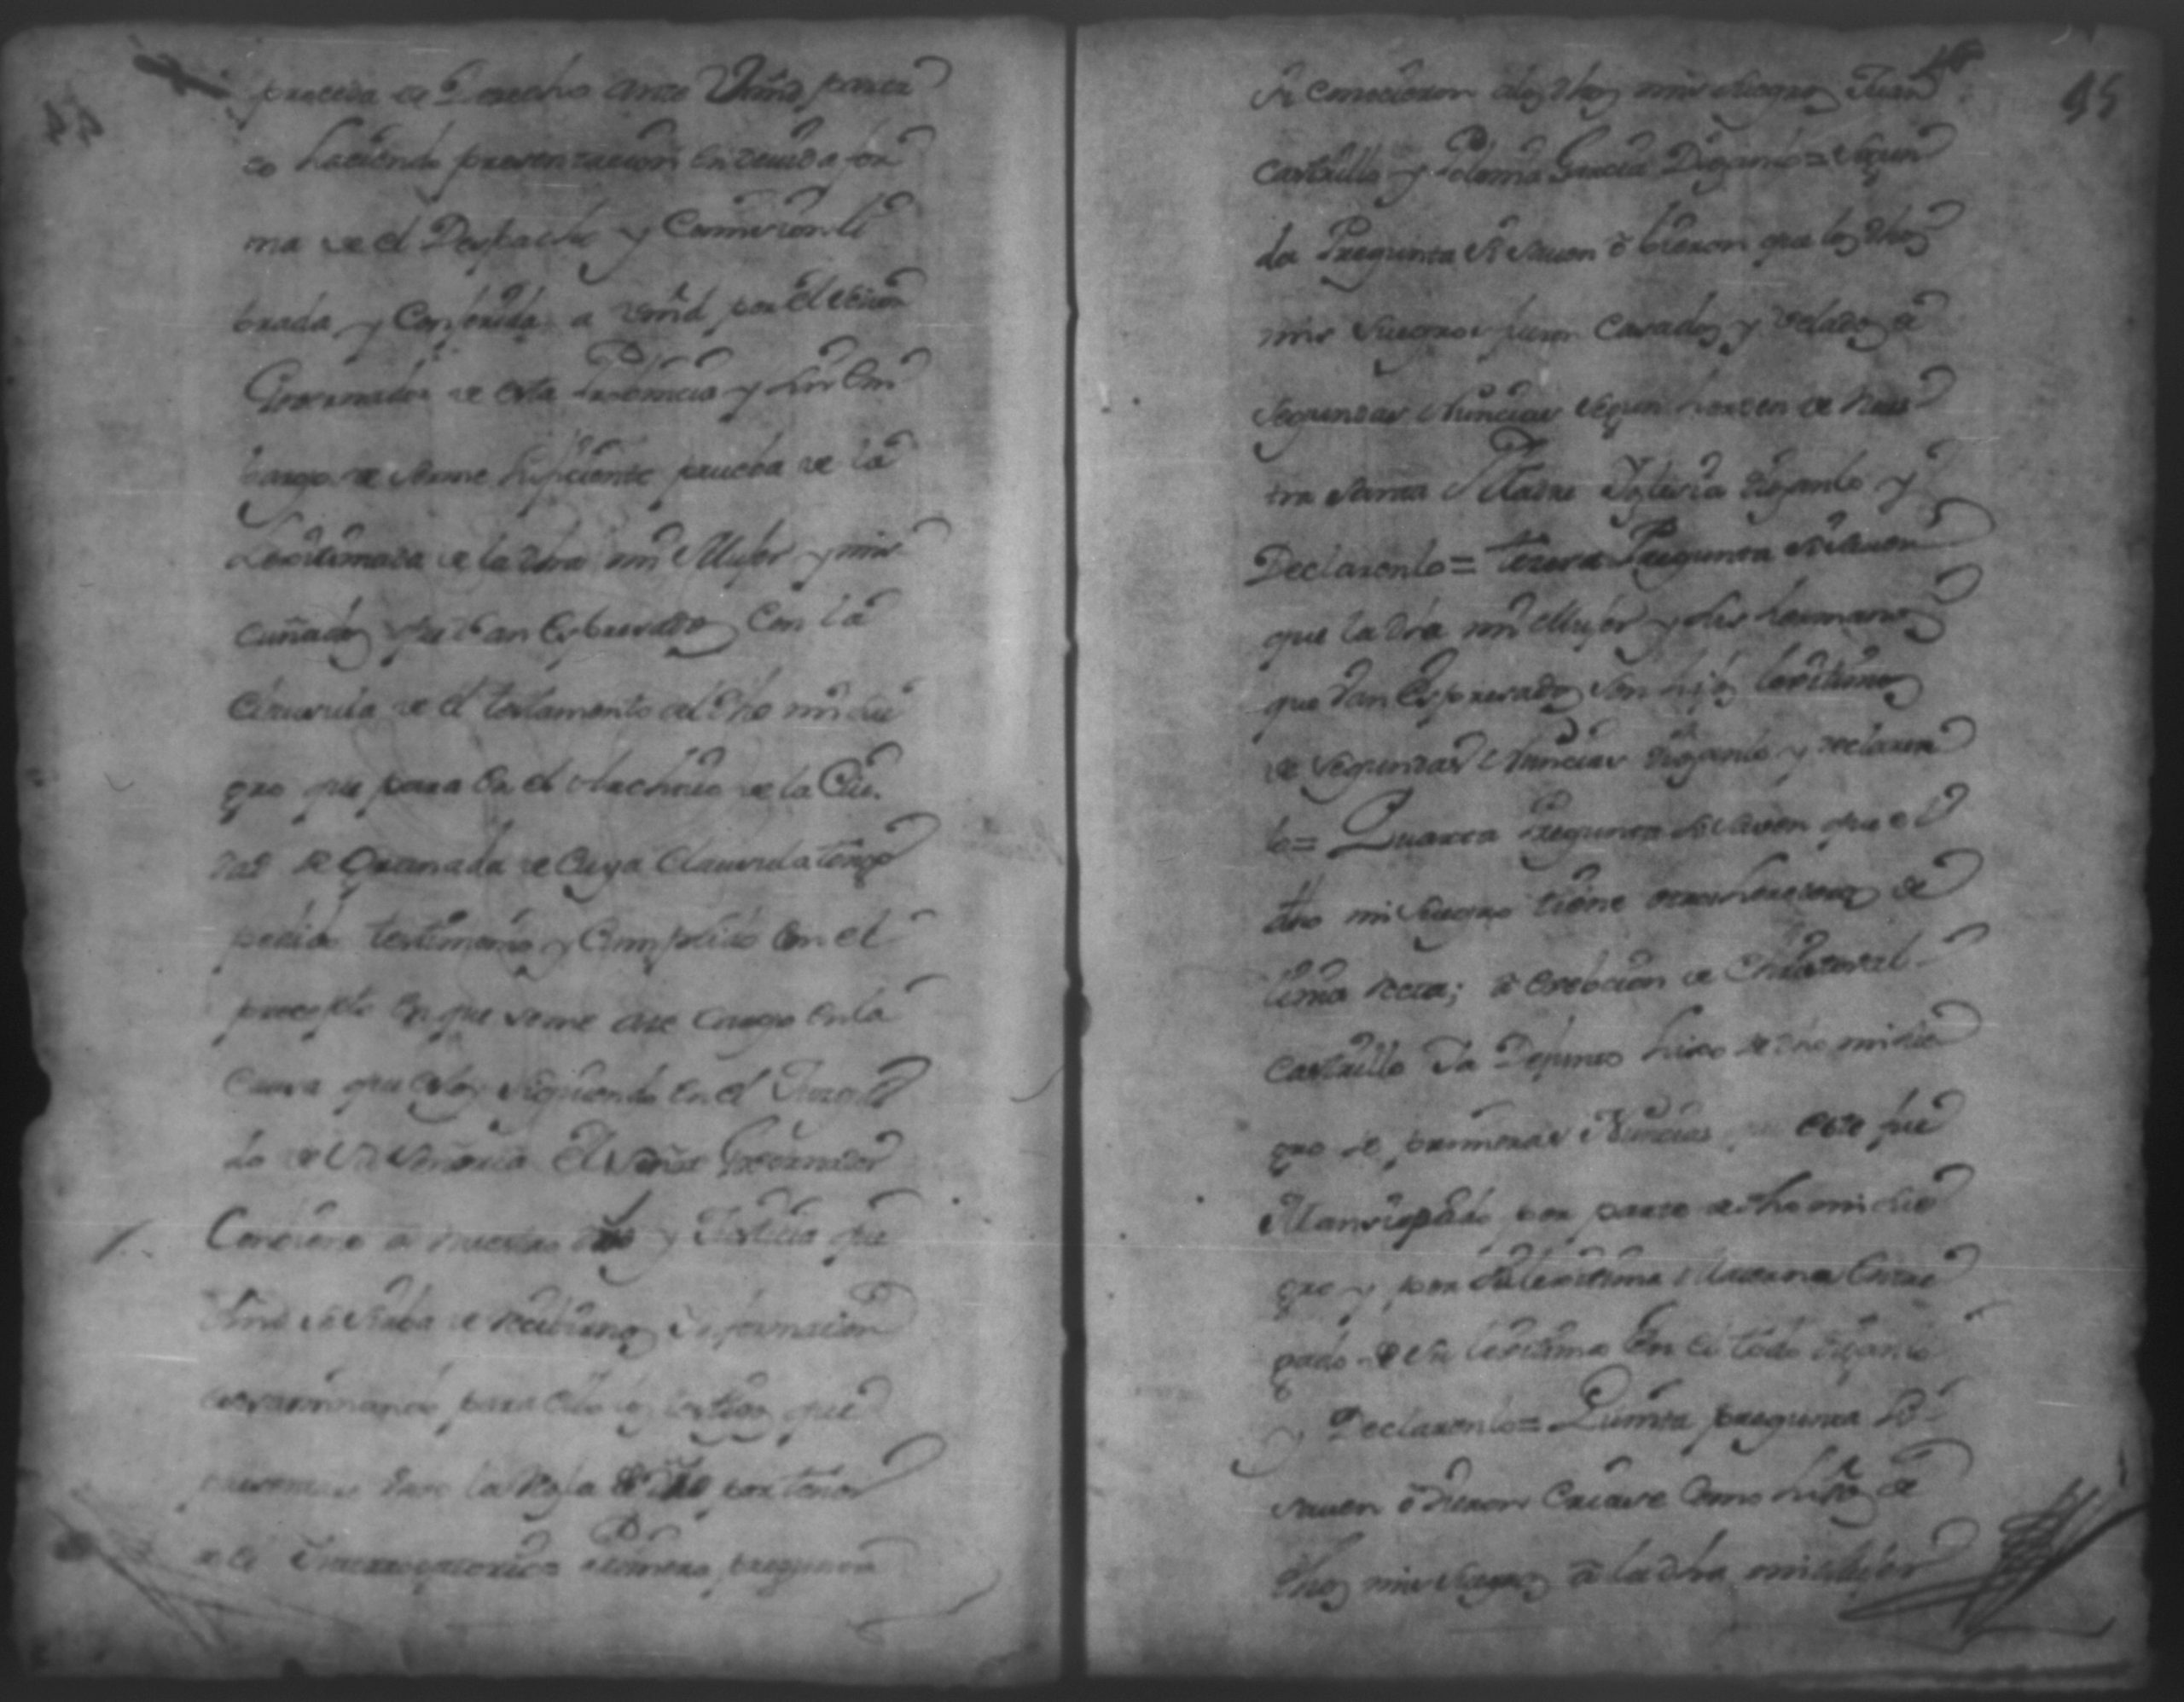 proceda de Derecho ante Vmd parez
co haciendo presentacion en devida for
ma de el Despacho y Comision li
brada y Conferida a Vmd por el señor
Governador de esta Probincia y sin em
bargo de serme suficiente prueba de la
Lexitimada de la dha mi Mujer y mis
cuñados que van Espresados Con la
Clausula de el testamento del dho mi sue
gro que para en el Archivo de la Ciu
dad de Granada de Cuya Clausula tengo
pedido testimonio y Cumplido Con el
precepto en que se me dise Cargo en la
Causa que estoy siguiendo en el Juzga
do de Su Señoria El Señor Governador
Conbiene a nuestro dro y Justicia que
Vmd se sirba de recibirnos Informacion
examinando para ello los testigos que
presentare bajo la Regla de dro por tenor
de el Interrogatorio = Primera pregunta
45
Si conocieron a los dhos mis suegros Juan
Castrillo y Paloma Garcia Diganlo = Segun
da Pregunta si sauen o bieron que los dhos
mis suegros fueron Casados y Velados de
segundas Nuncias segun horden de Nues
tra Santa Madre Yglesia diganlo y
Declarenlo = tersera Pregunta si sauen
que la dha mi Mujer y sus hermanos
que van Espresados son hijos lexitimos
de segundas Nuncias diganlo y declaren
lo = Quarta Pregunta si sauen que el
dho mi suegro tiene otros herederos de
linia recta; a esebcion de Christoval
Castrillo ya Defunto hixo de dho mi sue
gro de primeras Nuncias este fue
Mansipado por parte de dho mi sue
gro y por su lexitima Materna Entre
gado de su lexitima en el todo diganlo
y Declarenlo = Quinta pregunta si
sauen o bieron Criarse Como hijos de
dhos mis suegros a la dha mi Mujer